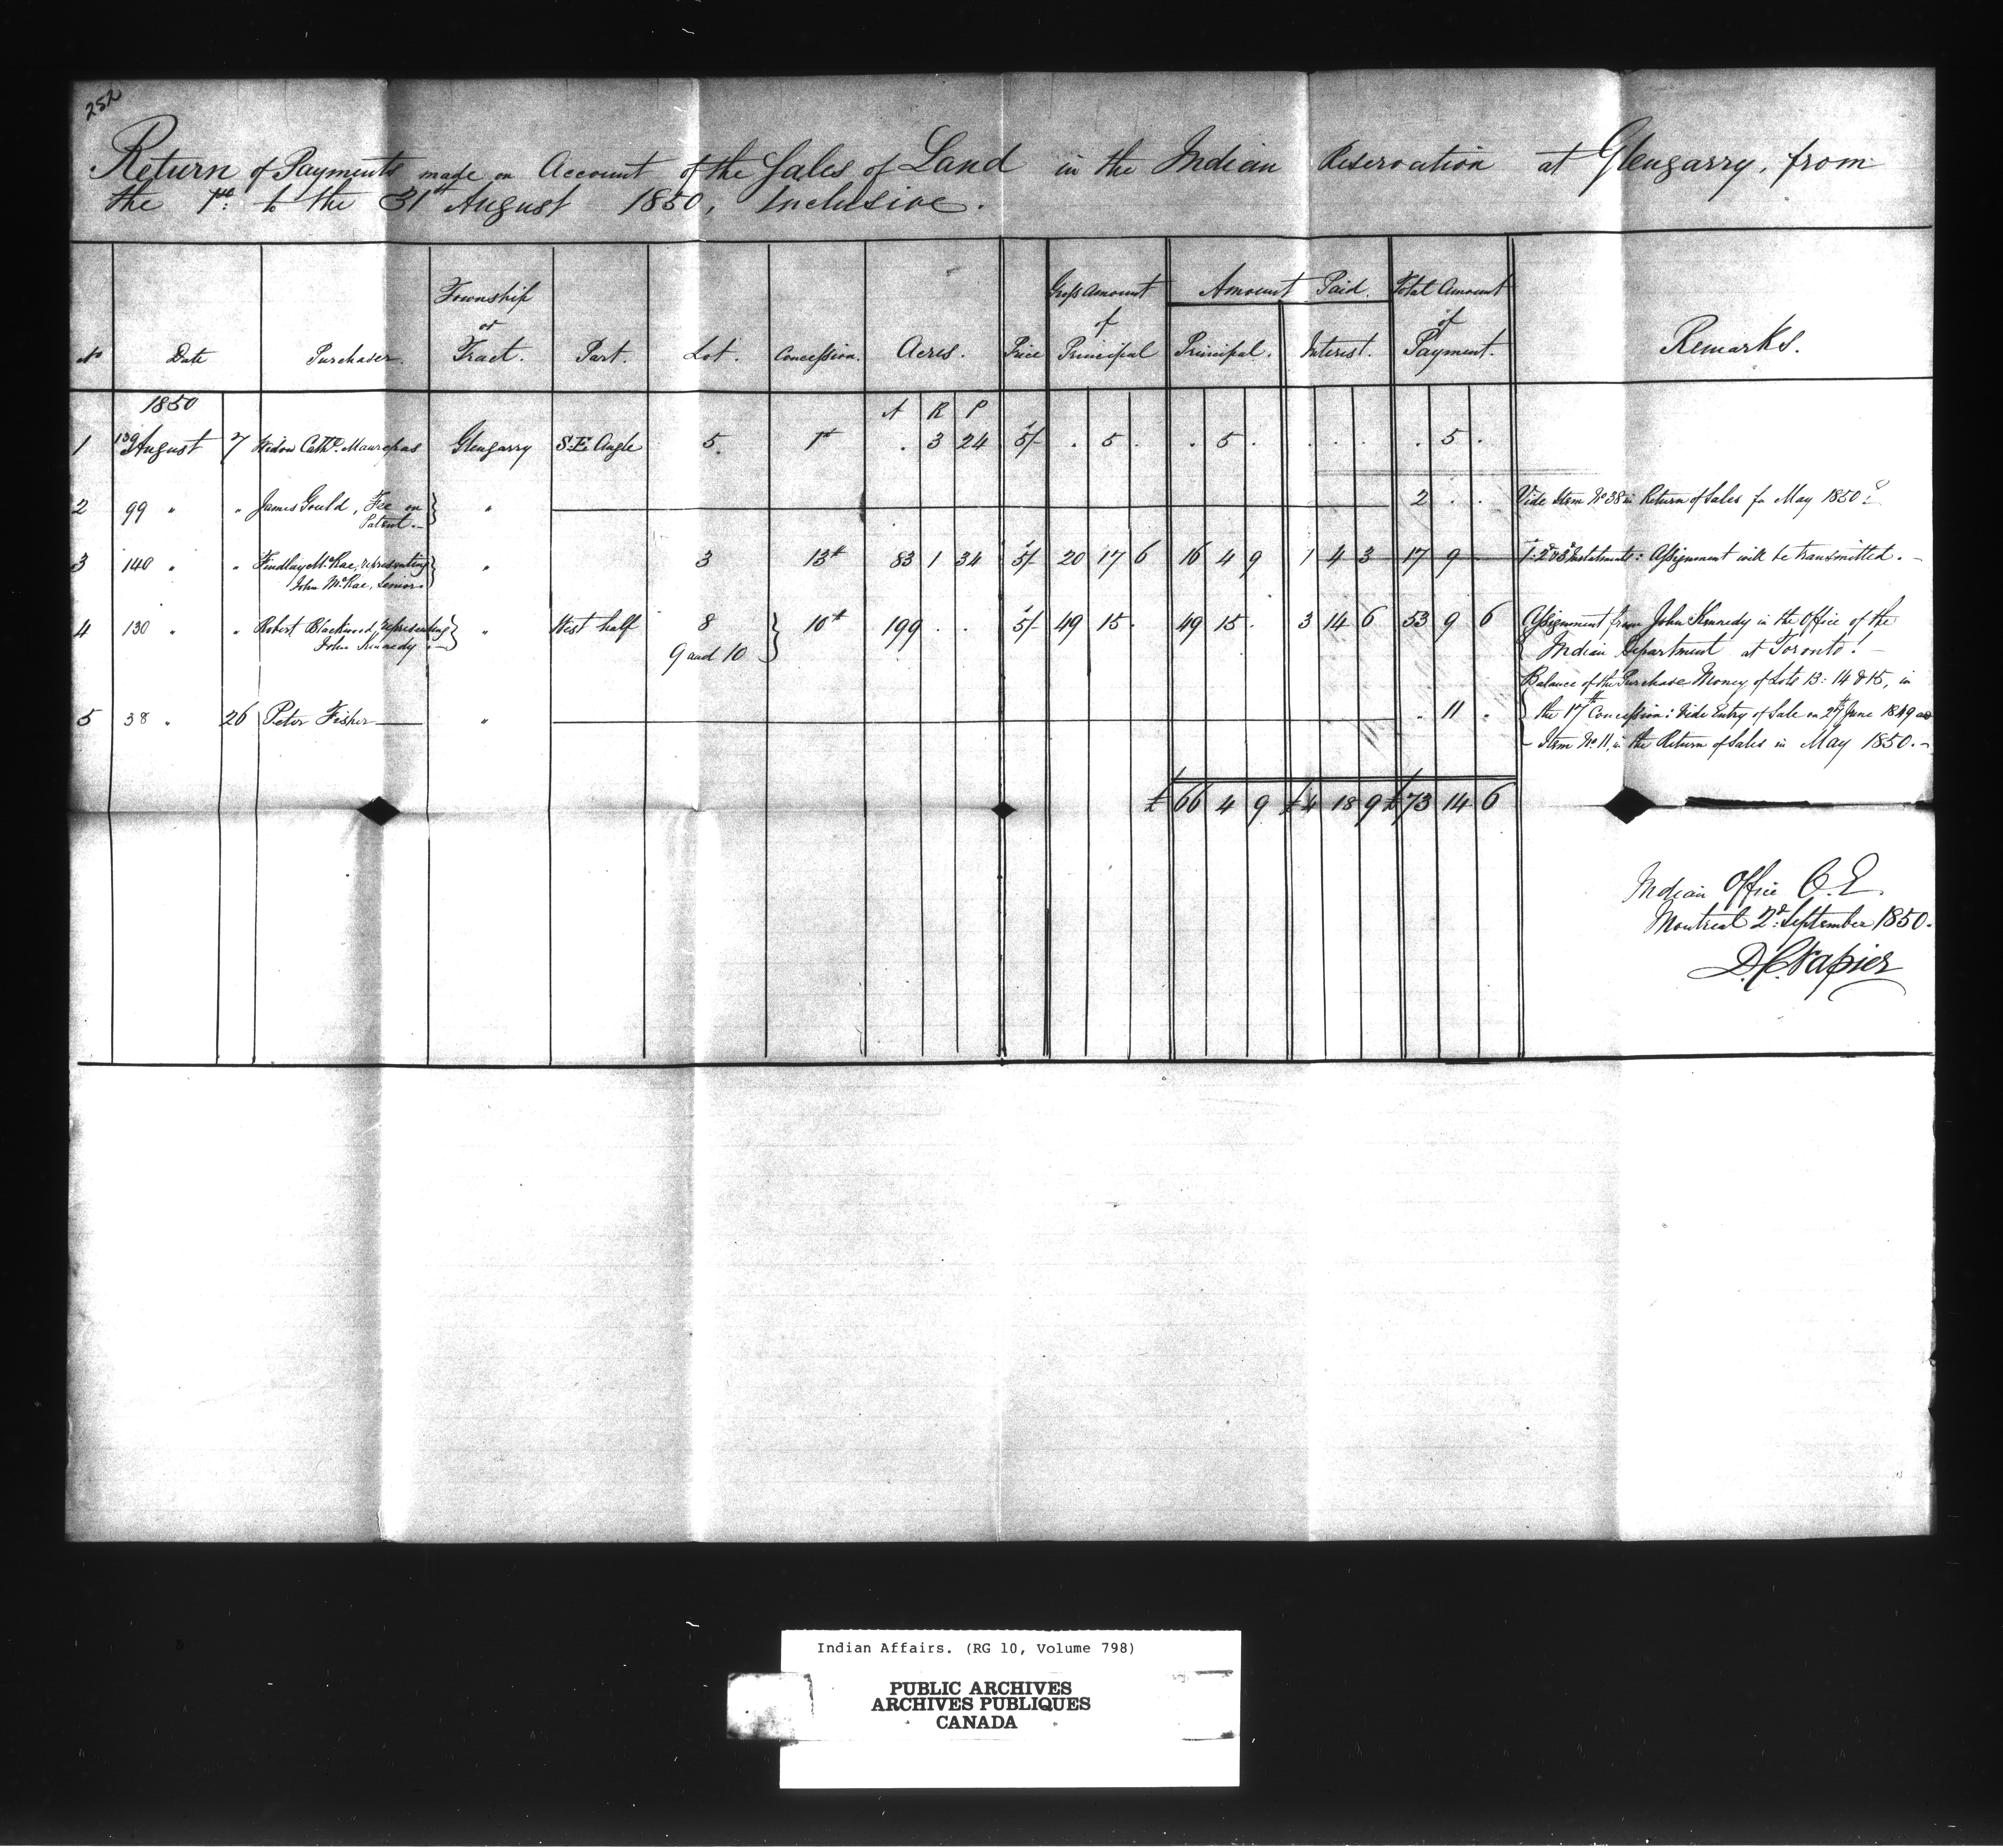 252
Return of Payments made on Account of the Sales of Land in the Indian Reservation at Glengarry, from
the 1st to the 31st August 1850, Inclusive.
No Date Purchaser. Township or Tract. Part. Lot. Concession. Acres. Price Gross Amount of Principal Amount Paid. Principal. Interest. Total Amount of Payment. Remarks.
1850 A R P
1 139 August 7 Widow Cathe. Maurepas Glengarry S.E. Angle 5. 1st . 3 24 5/- . 5 . . 5 . . . . . 5 .
2 99 " " James Gould, Fee on Patent.- } " 2 . . Vide Item No 38 in Return of Sales for May 1850.
3 140 " " Findlay McRae, representing John McRae, Senior } " 3 13th 83 1 34 5/- 20 17 6 16 4 9 1 4 3 17 9 - 1st 2d & 3d Instalments: Assignment will be transmitted. -
4 130 " " Robert Blackwood, representing John Kennedy.- } " West half 8 9 and 10 } 10th 199 . . 5/- 49 15 . 49 15 . 3 14 6 53 9 6 { Assignment from John Kennedy in the Office of the
Indian Department at Toronto! -
5 38 " 26 Peter Fisher " . 11 . { Balance of the Purchase Money of Lots 13: 14 & 15, in
the 17th Concession: Vide Entry of Sale on 27th June 1849 as
Item No. 11, in the Return of Sales in May 1850. -
£ 66 4 9 £4 18 9 £73 14 6
Indian Office C.E.
Montreal 2d September 1850.
D.C. Napier
Indian Affairs. (RG 10, Volume 798)
PUBLIC ARCHIVES
ARCHIVES PUBLIQUES
CANADA